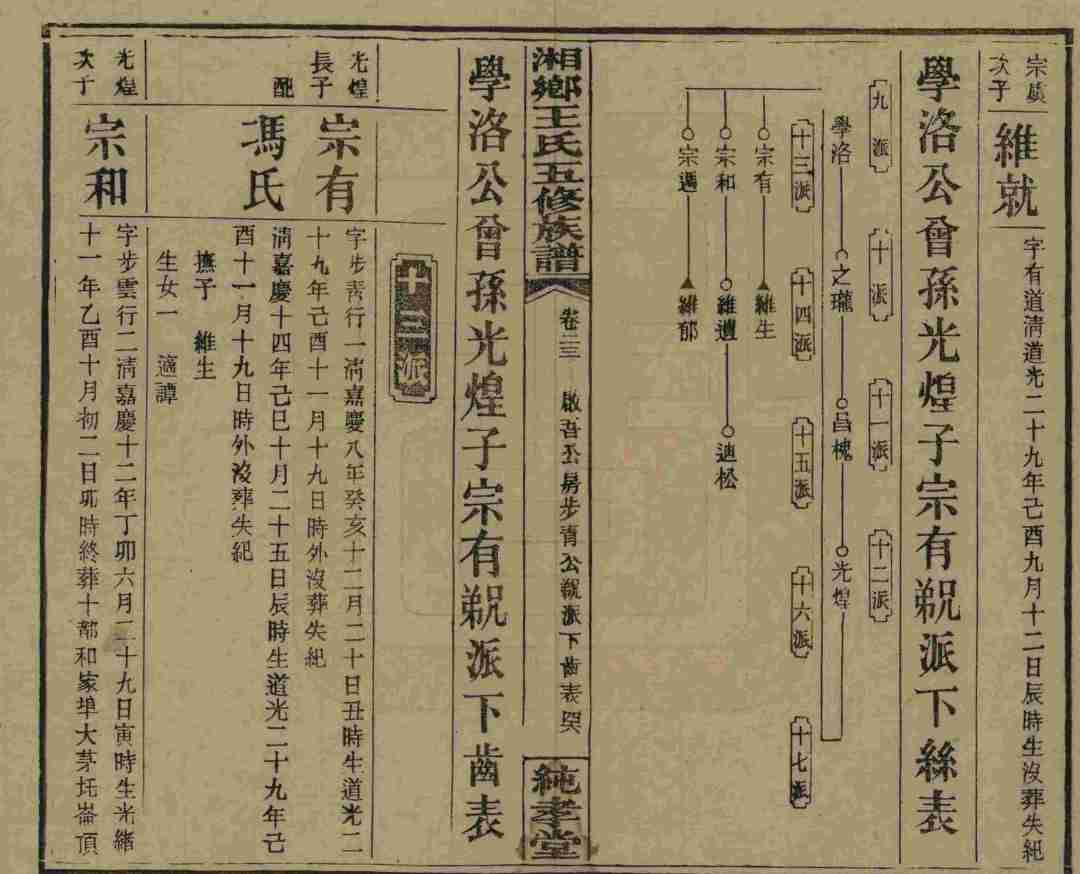 次子
維就
字有道清道光二十九年己酉九月十二日辰時生沒葬失紀
學洛公曾孫光煌子宗有派下絲表
九派
十派
十一派
十二派
學洛
之瓏
昌槐
光煌
十三派
十四派
十五派
十六派
十七派
宗有
維生
宗和
維遺
迪松
宗遇
維郁
湘鄉王氏五修族譜
卷二三
啟吾公房步青公派下齒表
純孝堂
學洛公曾孫光煌子宗有派下齒表
十三派
光煌
長子
宗有
字步青行一清嘉慶八年癸亥十二月二十日丑時生道光二
十九年己酉十一月十九日時外沒葬失紀
配
馮氏
清嘉慶十四年己巳十月二十五日辰時生道光二十九年己
酉十一月十九日時外沒葬失紀
撫子 維生
生女一 適譚
光煌
次子
宗和
字步雲行二清嘉慶十二年丁卯六月二十九日寅時生光緒
十一年乙酉十月初二日卯時終葬十都和家埠大茅坵崙頂